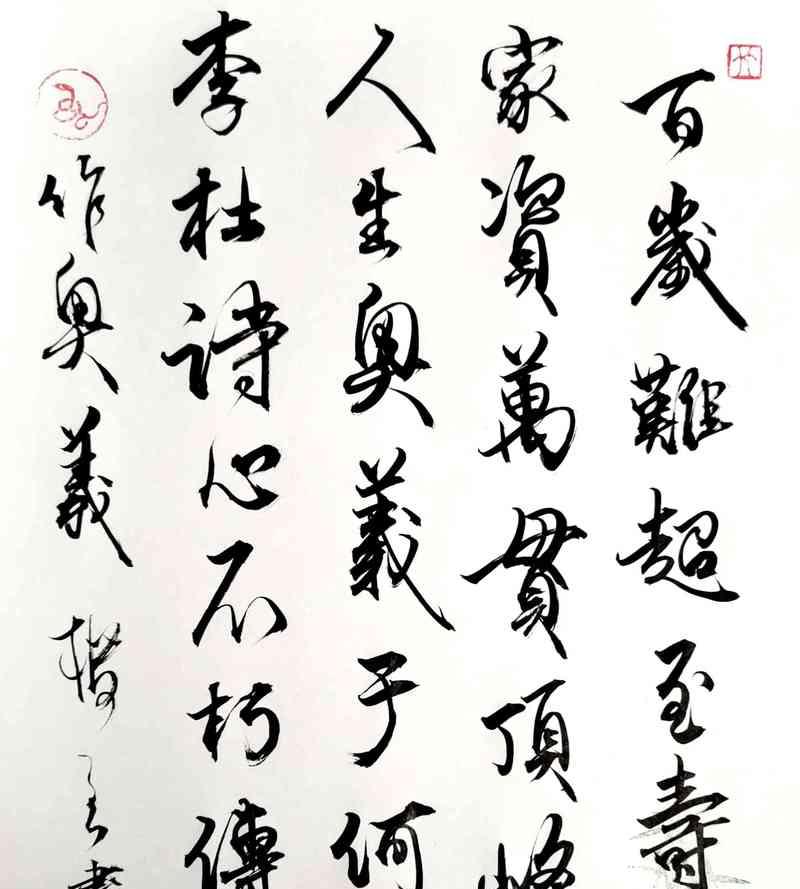 百歲難超至壽
家資萬貫頂
人生奧義于何
李杜詩心不朽傳
作奧義